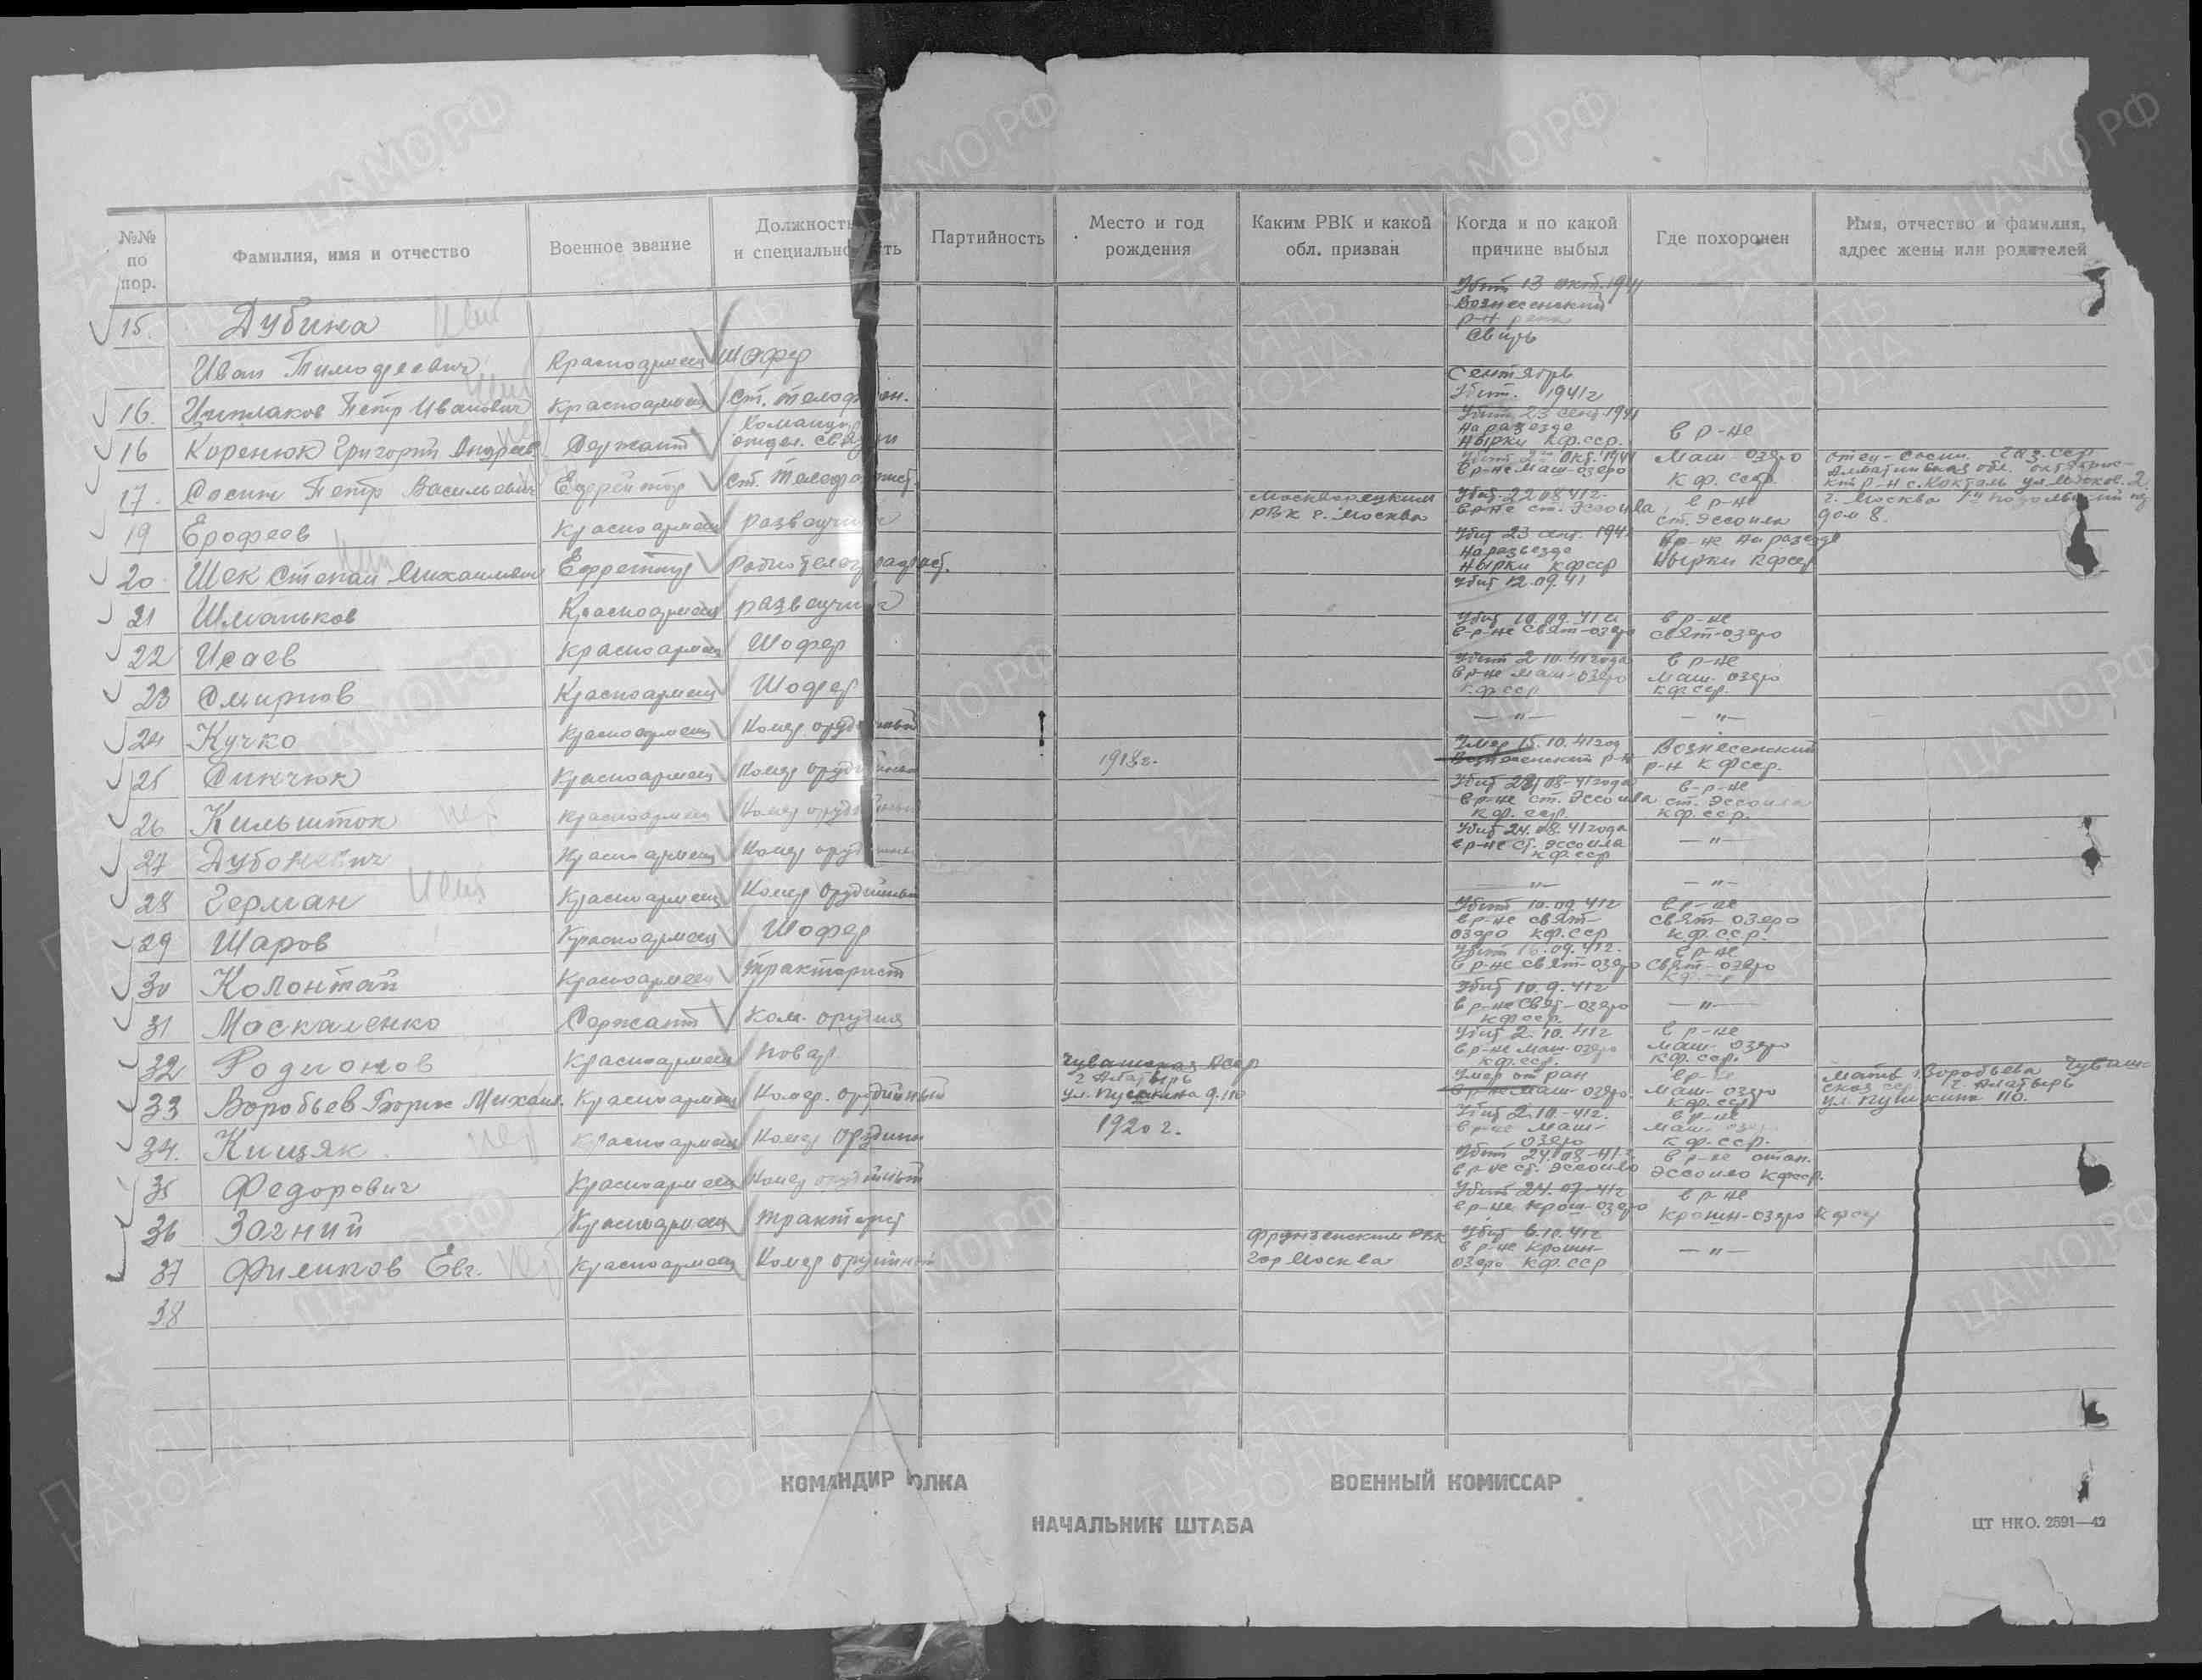 №№ по пор.
Фамилия, имя и отчество
Военное звание
Должность и специальность
Партийность
Место и год рождения
Каким РВК и какой обл. призван
Когда и по какой причине выбыл
Где похоронен
Имя, отчество и фамилия, адрес жены или родителей
15. Дубина Иван Тимофеевич Красноармеец Шофер Убит 13 окт. 1941 Вознесенский р-н Свирь
16. Петр Иванович Красноармеец Ст. телефон. Сентябрь Убит. 1941г
16 Коренюк Григорий Андреев. Сержант Командир отдел. связи Убит 23 сент. 1941 на разезде Нырки КФ.сср. в р-не
17. Сосин Петр Васильевич Ефрейтор Ст. Телефонист. Убит 2 окт. 1941 в р-не Маш-озеро Маш озеро КФ. сср. отец-Сосин
19 Ерофеев Красноармеец разведчик Москворецким РВК г. Москва Убит. 22 08 41г. в р-не ст. Эссойла в р-не ст. Эссойла г. Москва дом 8.
20 Шек Степан Михайлович Ефрейтор Радиотелеграфист. Убит 23 сент. 1941 на разъезде Нырки КФССР в р-не на разезде Нырки КФССР
21 Шманьков Красноармеец разведчик Убит 12.09.41
22 Исаев Красноармеец Шофер Убит 10.09.41г в р-не Свят-озеро в р-не Свят-озеро
23 Смирнов Красноармеец Шофер Убит 2 10.41 года в р-не Маш-озеро КФССР в р-не Маш. озеро КФССР.
24 Кучко Красноармеец Номер орудийный — " — — " —
25 Синчюк Красноармеец Номер орудийный 1918г. Умер 15.10.41 год Вознесенский р-н Вознесенский р-н КФССР.
26 Кильшток Красноармеец Номер орудийный Убит 08-41 года в р-не ст. Эссойла КФ. сср. в-р-не ст. Эссойла КФ.ССР.
27 Дубоневич Красноармеец Номер орудийный Убит 24.08.41 года в р-не ст. Эссойла КФССР — " —
28 Герман Красноармеец Номер Орудийный — " — — " —
29 Шаров Красноармеец Шофер Убит 10.09.41г в р-не Свят-озеро КФ.ССР в р-не Свят озеро КФ.ССР.
30 Колонтай Красноармеец тракторист Убит 16.09.41г. в р-не Свят-озеро в р-не Свят-озеро
31 Москаленко Сержант Ком. орудия Убит 10.9.41г в р-не Свят-озеро КФССР. — " —
32 Родионов Красноармеец Повар Убит 2.10.41г в р-не Маш-озеро КФ.ССР. в р-не Маш. озеро КФ.ССР.
33 Воробьев Борис Михаил. Красноармеец Номер. орудийный Чувашская АССР г Алатырь ул. Пушкина д. 110 Умер от ран в р-не Маш-озеро. в р-не Маш-озеро КФ.ССР Мать Воробьева Чувашская ССР г. Алатырь ул. Пушкина 110.
34. Кицяк Красноармеец Номер Орудийн 1920 г. Убит 2.10-41г. в р-не Маш-озеро в р-не Маш КФ.ССР.
35 Федорович Красноармеец Номер орудийный Убит 24.08-41г в р-не ст. Эссойло в р-не стан. Эссойло КФССР.
36 Загний Красноармеец тракторист Убит 24.07-41г в р-не Крош-озеро в р-не Крошн-озеро КФССР
37 Филипов Евг. Красноармеец Номер орудийный Фрунзенским РВК гор Москва Убит 6.10.41г в р-не Крошн-озеро КФ.ССР — " —
38
КОМАНДИР ПОЛКА
ВОЕННЫЙ КОМИССАР
НАЧАЛЬНИК ШТАБА
ЦТ НКО. 2591—42
ЦАМО.РФ
ПАМЯТЬ НАРОДА